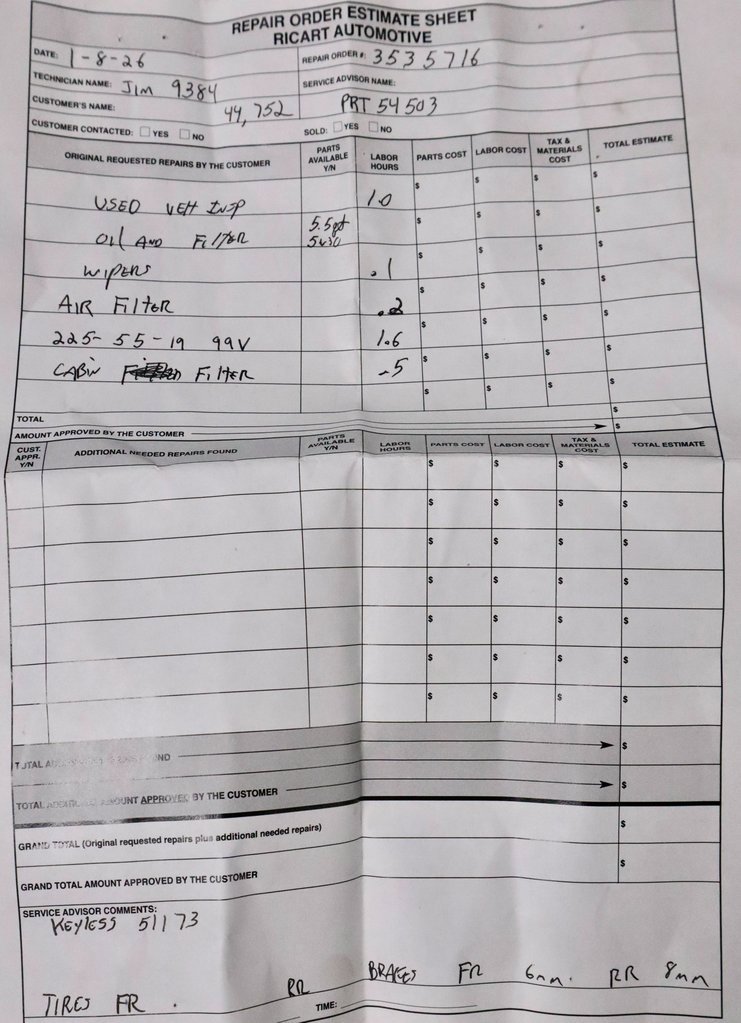 REPAIR ORDER ESTIMATE SHEET
RICART AUTOMOTIVE
DATE: 1-8-26
REPAIR ORDER #: 3535716
TECHNICIAN NAME: Jim 9384
SERVICE ADVISOR NAME:
CUSTOMER'S NAME: 44,752
PRT 54503
CUSTOMER CONTACTED: YES NO
SOLD: YES NO
ORIGINAL REQUESTED REPAIRS BY THE CUSTOMER PARTS AVAILABLE Y/N LABOR HOURS PARTS COST LABOR COST TAX & MATERIALS COST TOTAL ESTIMATE
USED VEH INSP 1.0 $ $ $ $
OIL AND FILTER 5.5qt 5w30 $ $ $ $
WIPERS .1 $ $ $ $
AIR FILTER .2 $ $ $ $
225-55-19 99V 1.6 $ $ $ $
CABIN FILTER .5 $ $ $ $
$ $ $ $
TOTAL $
AMOUNT APPROVED BY THE CUSTOMER $
CUST. APPR. Y/N ADDITIONAL NEEDED REPAIRS FOUND PARTS AVAILABLE Y/N LABOR HOURS PARTS COST LABOR COST TAX & MATERIALS COST TOTAL ESTIMATE
$ $ $ $
$ $ $ $
$ $ $ $
$ $ $ $
$ $ $ $
$ $ $ $
$ $ $ $
TOTAL $
TOTAL ADDITIONAL AMOUNT APPROVED BY THE CUSTOMER $
GRAND TOTAL (Original requested repairs plus additional needed repairs) $
GRAND TOTAL AMOUNT APPROVED BY THE CUSTOMER $
SERVICE ADVISOR COMMENTS:
KEYLESS 51173
TIRES FR . RR BRAKES FR 6mm. RR 8mm
TIME: